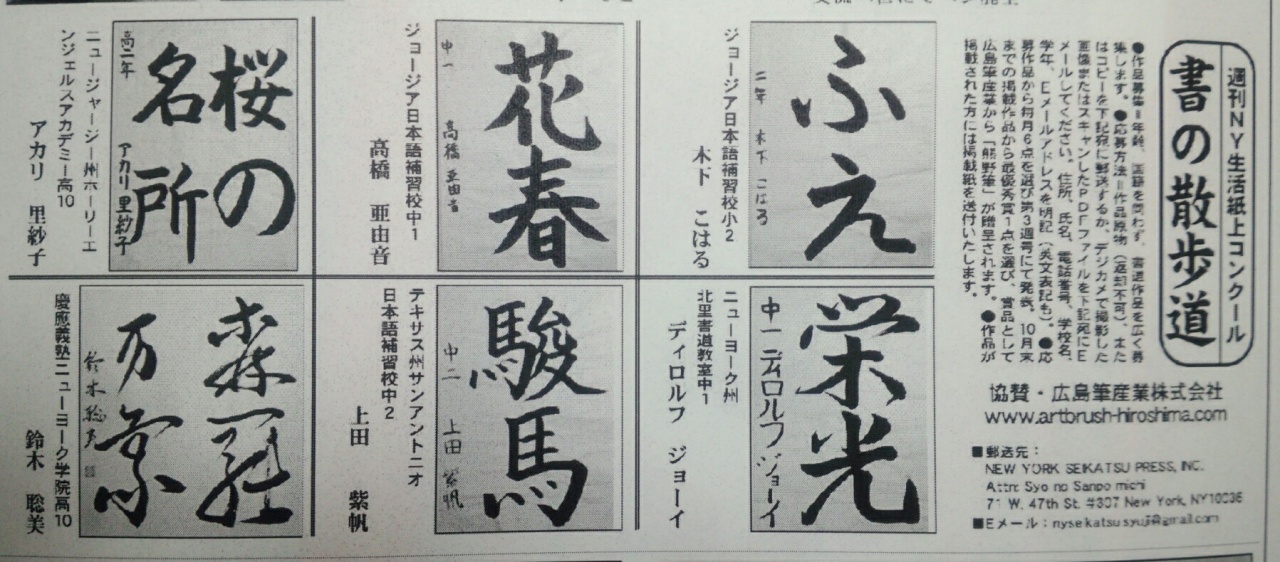 週刊NY生活紙上コンクール
書の散歩道
●作品募集＝年齢、国籍を問わず、書道作品を広く募
集します。●応募方法＝作品原物（返却不可）、また
はコピーを下記宛に郵送するか、デジカメで撮影した
画像またはスキャンしたPDFファイルを下記宛にE
メールしてください。住所、氏名、電話番号、学校名、
学年、Eメールアドレスを明記（英文表記も）。●応
募作品から毎月6点を選び第3週号にて発表。10月末
までの掲載作品から最優秀賞1点を選び、賞品として
広島筆産業から「熊野筆」が贈呈されます。●作品が
掲載された方には掲載紙を送付いたします。
協賛・広島筆産業株式会社
www.artbrush-hiroshima.com
■郵送先：
NEW YORK SEIKATSU PRESS, INC.
Attn: Syo no Sanpo michi
71 W. 47th St. #307 New York, NY10036
■Eメール：nyseikatsusyuji@gmail.com
ふえ
二年 木下 こはる
ジョージア日本語補習校小2
木下 こはる
花春
中一 高橋 亜由音
ジョージア日本語補習校中1
高橋 亜由音
桜の
名所
高一年 アカリ里紗子
ニュージャージー州ホーリーエ
ンジェルスアカデミー高10
アカリ 里紗子
栄光
中一 ディロルフ ジョーイ
ニューヨーク州
北里書道教室中1
ディロルフ ジョーイ
駿馬
中二 上田 紫帆
テキサス州サンアントニオ
日本語補習校中2
上田 紫帆
森羅
万象
鈴木聡美
慶應義塾ニューヨーク学院高10
鈴木 聡美